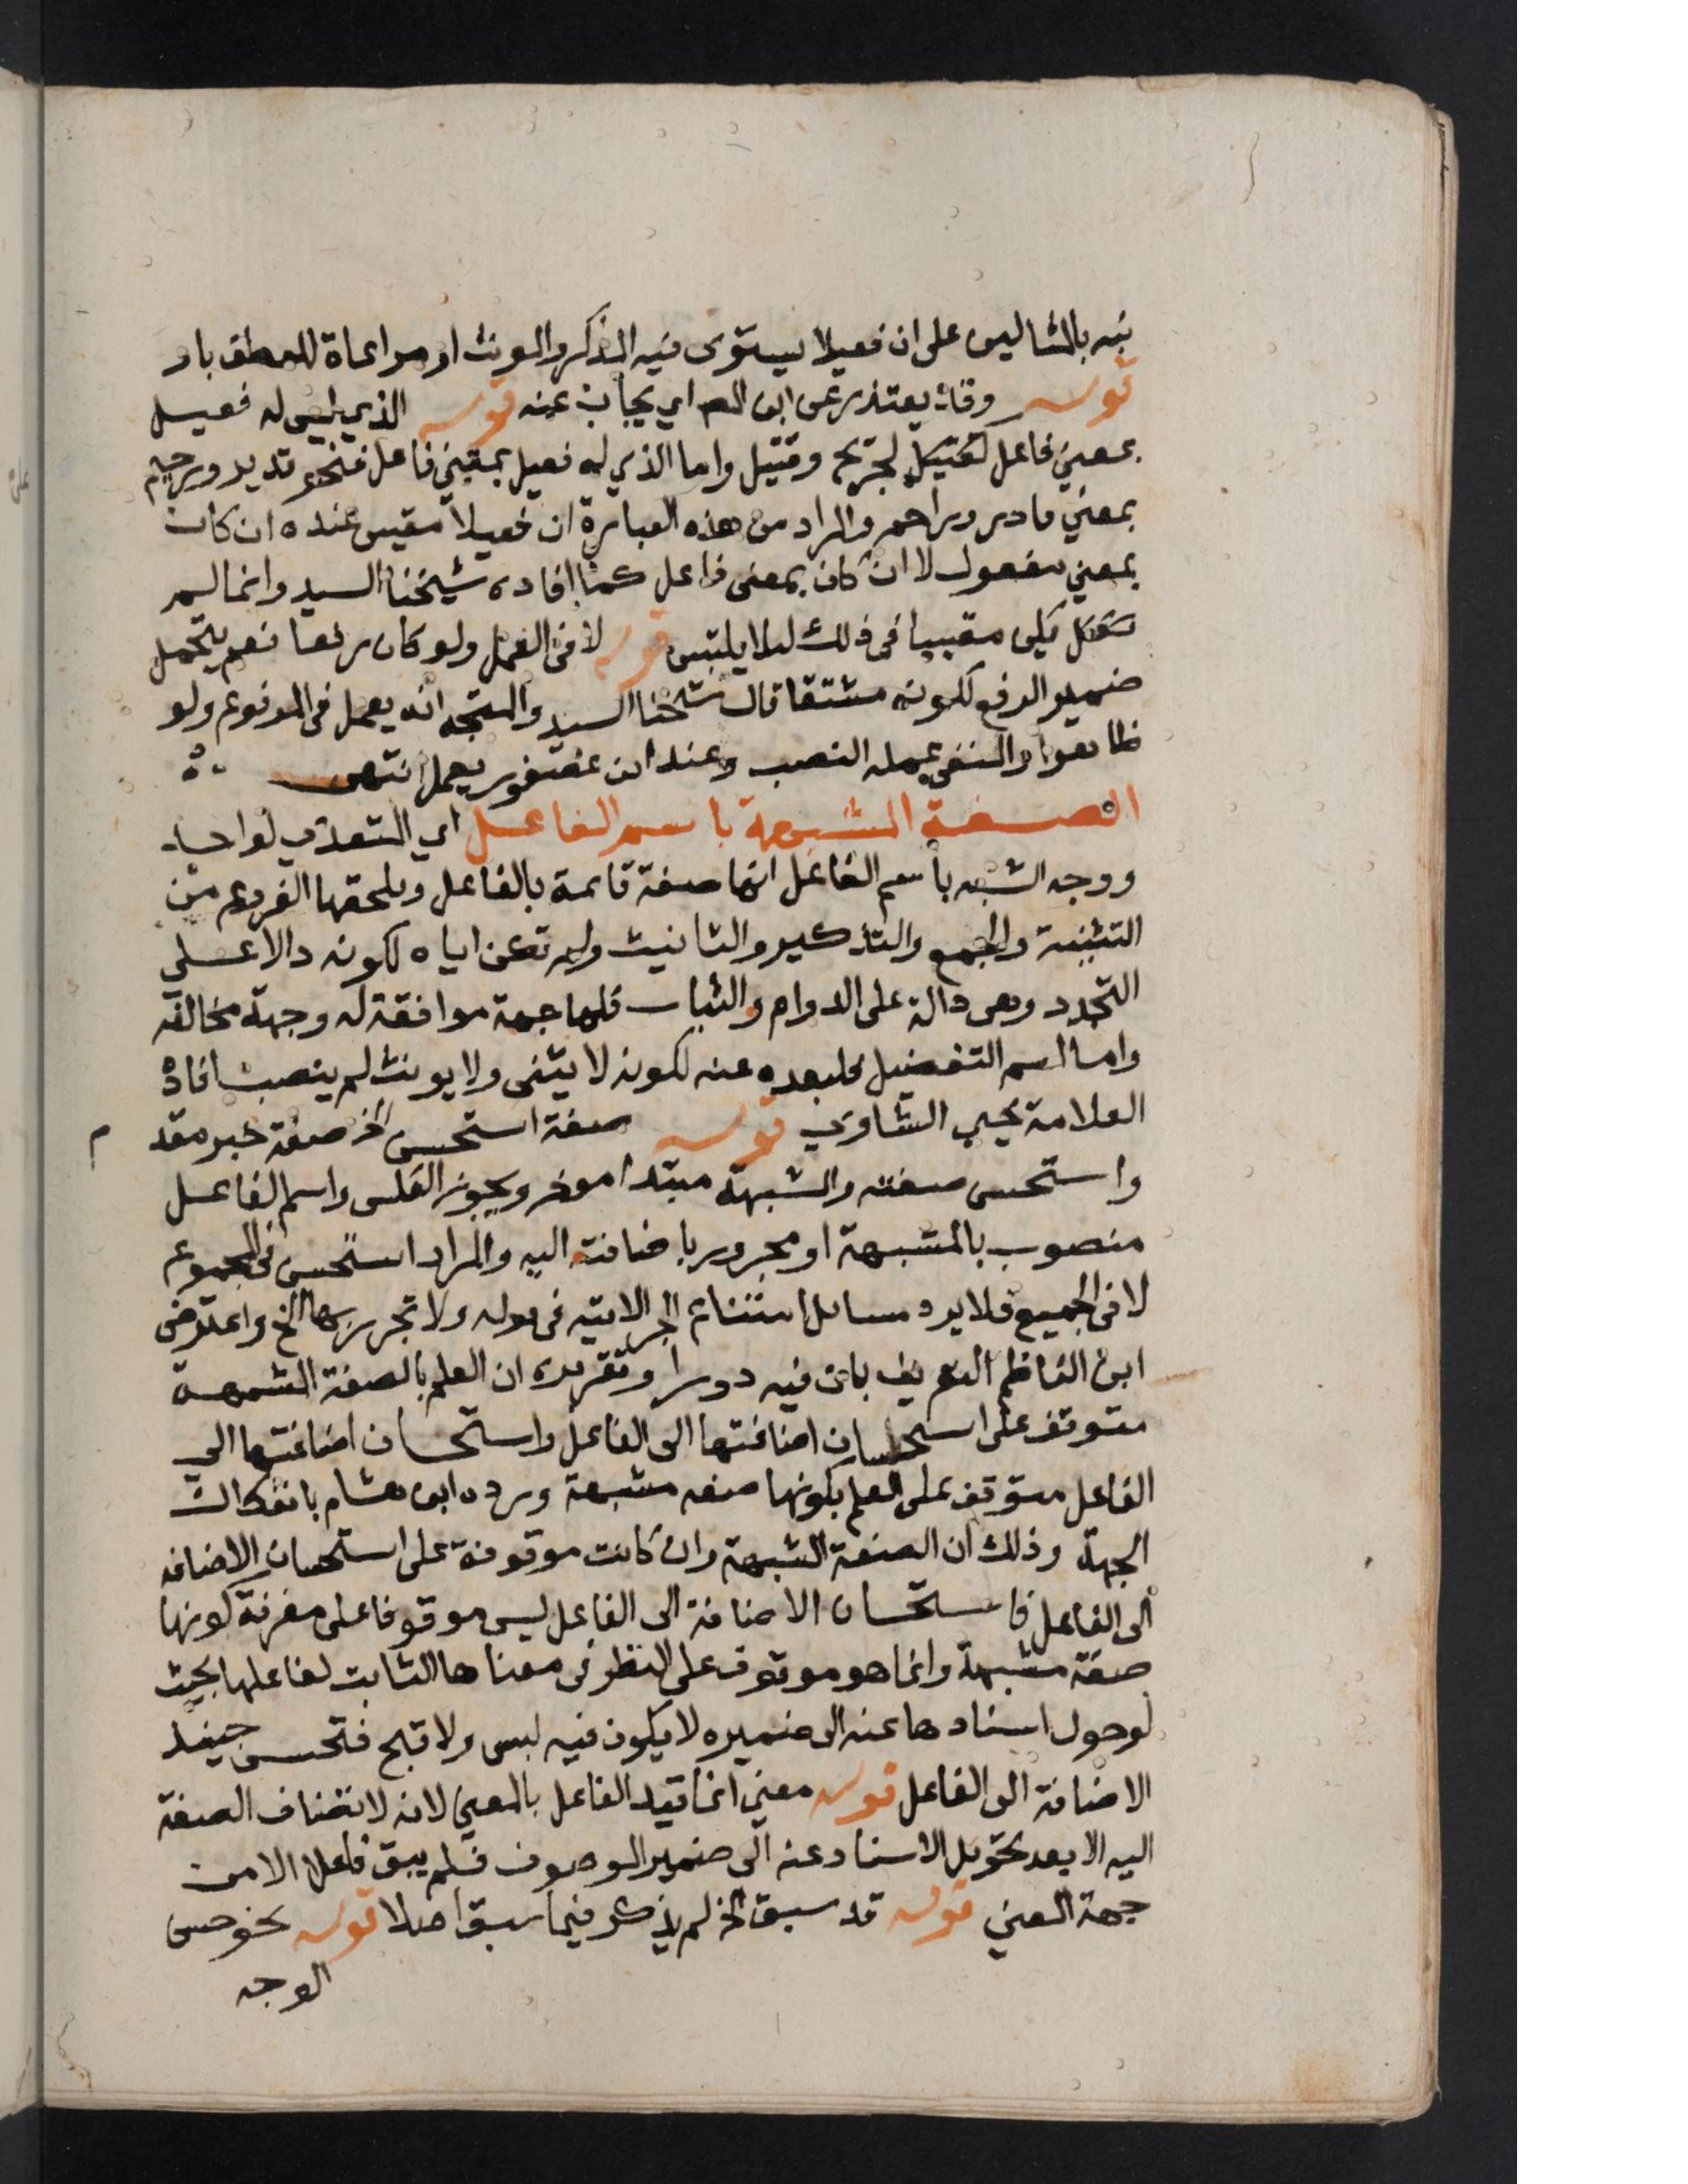 نبه بالمثالين على ان فعيلا يستوى فيه المذكر والمونث او مراعاة للعطف باو
قوله وقد يعتذر عن ابن المص اي يجاب عنه قوله الذي ليس له فعيل
بمعني فاعل كقتيل لجريح وقتيل واما الذي له فعيل بمعني فاعل فنحو قدير ورحيم
بمعني قادر وراحم والمراد من هذه العبارة ان فعيلا مقيس عنده ان كان
بمعني مفعول لا ان كان بمعنى فاعل كما افاده شيخنا السيد وانما لم
مقيسا فى ذلك ليلا يلتبس قوله لا فى العمل ولو كان رفعا نعم يتحمل
ضمير الرفع لكونه مشتقا قال شيخنا السيد والمتجه انه يعمل فى المرفوع ولو
ظاهرا والمنفي عمله النصب وعند ابن عصفور يعمل انتهى
الصفة المشبهة باسم الفاعل اي المتعدي لواحد
ووجه الشبه باسم الفاعل انها صفة قائمة بالفاعل ويلحقها الفروع من
التثنية والجمع والتذكير والتانيث ولم تكن اياه لكونه دالا على
التجدد وهى دالة على الدوام والثبات فلها جهة موافقة له وجهة مخالفه
واما اسم التفضيل فلبعده عنه لكونه لا يثنى ولا يونث لم ينصب افاده
العلامة يحيي الشاوي قوله صفة استحسن الخ صفة خبر مقدم
واستحسن صفته والمشبهة مبتدا موخر ويجوز العكس واسم الفاعل
منصوب بالمشبهة او مجرور باضافته اليه والمراد استحسن فى المجموع
لا فى الجميع فلا يرد مسائل امتناع الجر الاتيه فى قوله ولا تجرر بها الخ واعترض
ابن الناظم التعريف بان فيه دورا وتقريره ان العلم بالصفة المشبهة
متوقف على استحسان اضافتها الى الفاعل واستحسان اضافتها الي
الفاعل متوقف على العلم بكونها صفه مشبهة ورده ابن هشام بانفكاك
الجهة وذلك ان الصفة المشبهة وان كانت موقوفة على استحسان الاضافه
الى الفاعل فاستحسان الاضافة الى الفاعل ليس موقوفا على معرفة كونها
صفة مشبهة وانما هو موقوف على النظر فى معناها الثابت لفاعلها بحيث
لو حول اسنادها عنه الى ضميره لا يكون فيه لبس ولا قبح فتحسن حينئذ
الاضافة الى الفاعل قوله معني انما قيد الفاعل بالمعني لانه لا تضاف الصفة
اليه الا بعد تحويل الاسناد عنه الى ضمير الموصوف فلم يبق فاعلا الا من
جهة المعني قوله قد سبق الخ لم يذكر فيما سبق اصلا قوله نحو حسن
الوجه